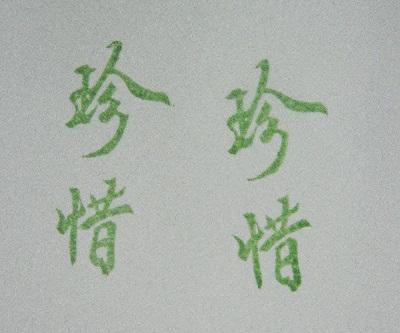 珍惜
珍惜